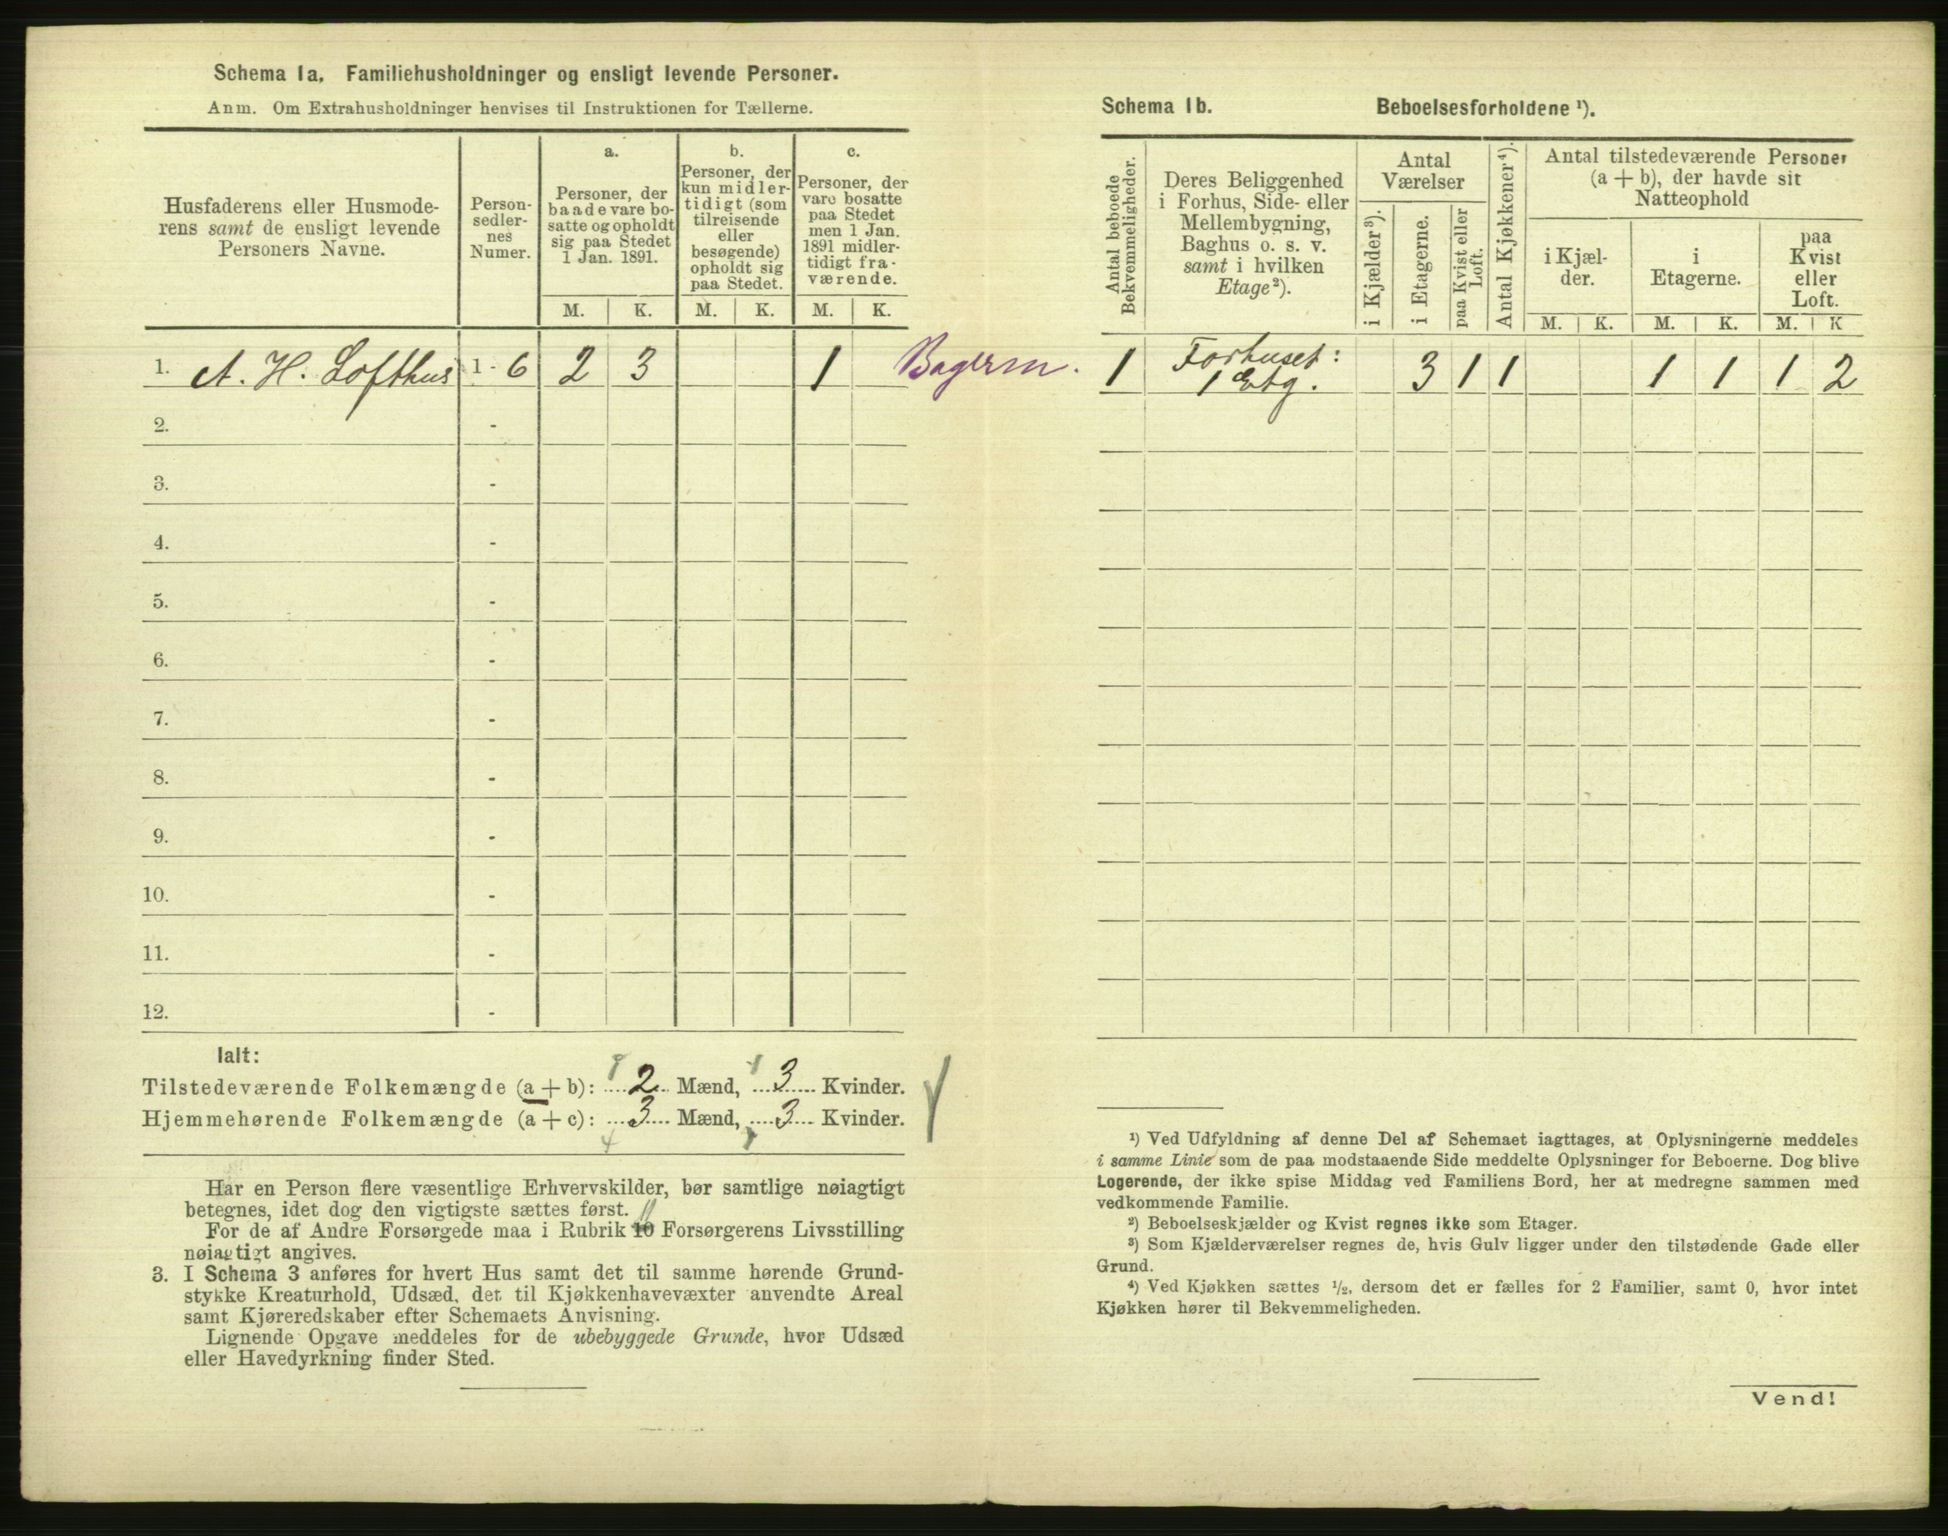 Schema 1a. Familiehusholdninger og ensligt levende Personer.
Anm. Om Extrahusholdninger henvises til Instruktionen for Tællerne.
Husfaderens eller Husmode-
rens samt de ensligt levende
Personers Navne.
Person-
sedler-
nes
Numer.
a.
Personer, der
baade vare bo-
satte og opholdt
sig paa Stedet
1 Jan. 1891.
b.
Personer, der
kun midler-
tidigt (som
tilreisende
eller
besøgende)
opholdt sig
paa Stedet.
c.
Personer, der
vare bosatte
paa Stedet
men 1 Jan.
1891 midler-
tidigt fra-
værende.
M. K. M. K. M. K.
1. A. H. Lofthus 1 - 6 2 3 1
2. -
3. -
4. -
5. -
6. -
7. -
8. -
9. -
10. -
11. -
12. -
Ialt:
Tilstedeværende Folkemængde (a + b): 2 Mænd, 3 Kvinder.
Hjemmehørende Folkemængde (a + c): 3 Mænd, 3 Kvinder.
Har en Person flere væsentlige Erhvervskilder, bør samtlige nøiagtigt
betegnes, idet dog den vigtigste sættes først.
11
For de af Andre Forsørgede maa i Rubrik 10 Forsørgerens Livsstilling
nøiagtigt angives.
3. I Schema 3 anføres for hvert Hus samt det til samme hørende Grund-
stykke Kreaturhold, Udsæd, det til Kjøkkenhavevæxter anvendte Areal
samt Kjøreredskaber efter Schemaets Anvisning.
Lignende Opgave meddeles for de ubebyggede Grunde, hvor Udsæd
eller Havedyrkning finder Sted.
Schema 1b. Beboelsesforholdene ¹).
Antal beboede
Bekvemmeligheder.
Deres Beliggenhed
i Forhus, Side- eller
Mellembygning,
Baghus o. s. v.
samt i hvilken
Etage²).
Antal
Værelser
i Kjælder³).
i Etagerne.
paa Kvist eller
Loft.
Antal Kjøkkener⁴).
Antal tilstedeværende Personer
(a + b), der havde sit
Natteophold
i Kjæl-
der.
i
Etagerne.
paa
Kvist
eller
Loft.
M. K. M. K. M. K
1 Forhuset: 3 1 1 1 1 1 2
1 Etg.
¹) Ved Udfyldning af denne Del af Schemaet iagttages, at Oplysningerne meddeles
i samme Linie som de paa modstaaende Side meddelte Oplysninger for Beboerne. Dog blive
Logerende, der ikke spise Middag ved Familiens Bord, her at medregne sammen med
vedkommende Familie.
²) Beboelseskjælder og Kvist regnes ikke som Etager.
³) Som Kjælderværelser regnes de, hvis Gulv ligger under den tilstødende Gade eller
Grund.
⁴) Ved Kjøkken sættes ½, dersom det er fælles for 2 Familier, samt 0, hvor intet
Kjøkken hører til Bekvemmeligheden.
Vend!